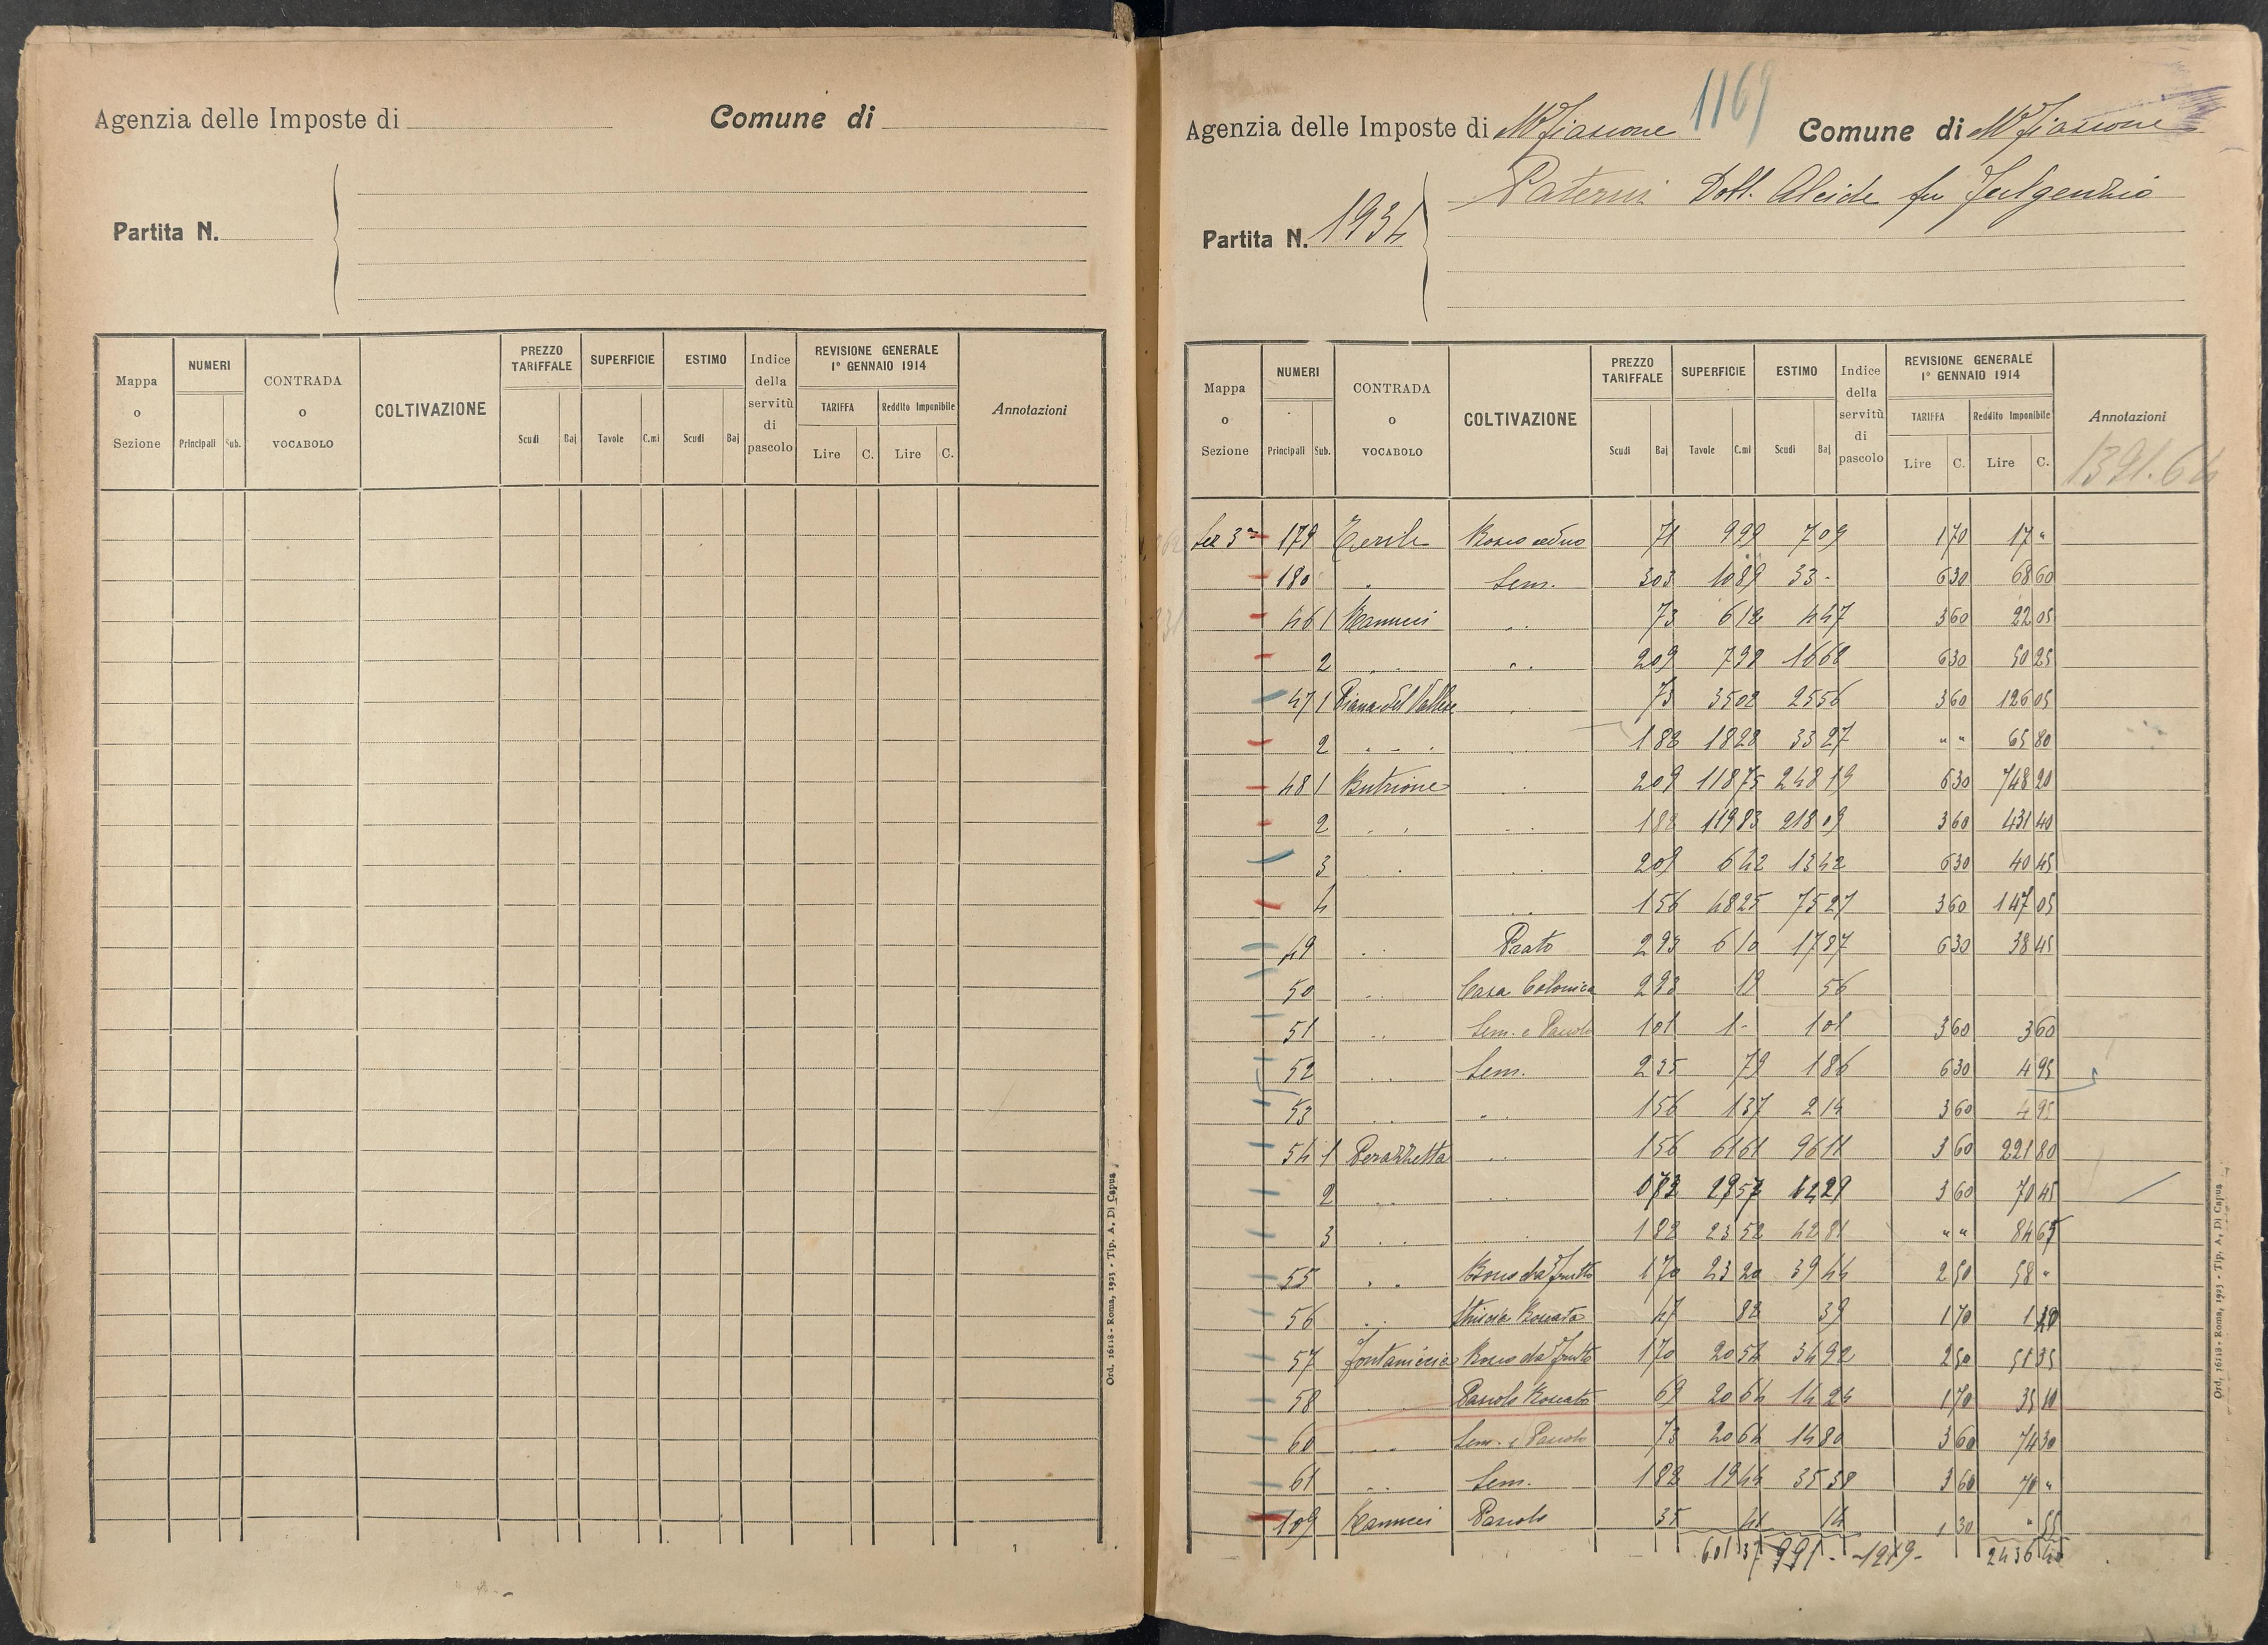 Agenzia delle Imposte di
Comune di
Partita N.
Mappa o Sezione
NUMERI
Principali Sub.
CONTRADA o VOCABOLO
COLTIVAZIONE
PREZZO TARIFFALE
Scudi Baj
SUPERFICIE
Tavole C.mi
ESTIMO
Scudi Baj
Indice della servitù di pascolo
REVISIONE GENERALE 1° GENNAIO 1914
TARIFFA
Lire C.
Reddito Imponibile
Lire C.
Annotazioni
Ord. 16118 - Roma, 1923 - Tip. A. Di Capua
1169
Agenzia delle Imposte di Mfiascone
Comune di Mfiascone
Partita N. 1934
Paterni Dott. Alcide fu Fulgenzio
Mappa o Sezione
NUMERI
Principali Sub.
CONTRADA o VOCABOLO
COLTIVAZIONE
PREZZO TARIFFALE
Scudi Baj
SUPERFICIE
Tavole C.mi
ESTIMO
Scudi Baj
Indice della servitù di pascolo
REVISIONE GENERALE 1° GENNAIO 1914
TARIFFA
Lire C.
Reddito Imponibile
Lire C.
Annotazioni
1391.64
Sez 3ª 179 Bosco ceduo 71 9 99 7 09 1 70 17 "
180 " Sem. 3 03 10 89 33 - 6 30 68 60
46 1 73 6 12 4 47 3 60 22 05
2 " " " " 2 09 7 98 16 68 6 30 50 25
47 1 Piana del Vallese " 73 35 02 25 56 3 60 126 05
2 " " " " 1 82 18 28 33 27 " " 65 80
48 1 Butrione " 2 09 118 75 248 19 6 30 748 20
2 " " " " 1 82 119 83 218 09 3 60 431 40
3 " " " 2 09 6 42 13 42 6 30 40 45
4 " " 1 56 48 25 75 27 3 60 147 05
49 " " Prato 2 93 6 10 17 87 6 30 38 45
50 " " Casa Colonica 2 93 19 56
51 " " Sem. e Pascolo 1 01 1 - 1 01 3 60 3 60
52 " " Sem. 2 35 79 1 86 6 30 4 95
53 " " " " 1 56 1 37 2 14 3 60 4 95
54 1 Perazzetta " " 1 56 61 61 96 11 3 60 221 80
2 " " " " 0 73 19 57 14 29 3 60 70 45
3 " " " " 1 82 23 52 42 81 " " 84 65
55 " " Bosco da frutto 1 70 23 20 39 44 2 50 58 "
56 " " Striscia Boscata 47 82 39 1 70
57 Bosco da frutto 1 70 20 54 34 92 2 50 51 35
58 " " Pascolo Boscato 69 20 64 14 24 1 70 35 10
60 " " Sem. e Pascolo 73 20 64 14 80 3 60 74 30
61 " " Sem. 1 82 19 44 35 38 3 60 70 "
109 Pascolo 35 41 14 1 30 " 55
601 37 991 - 1919 - 2436 45
Ord. 16118 - Roma, 1923 - Tip. A. Di Capua